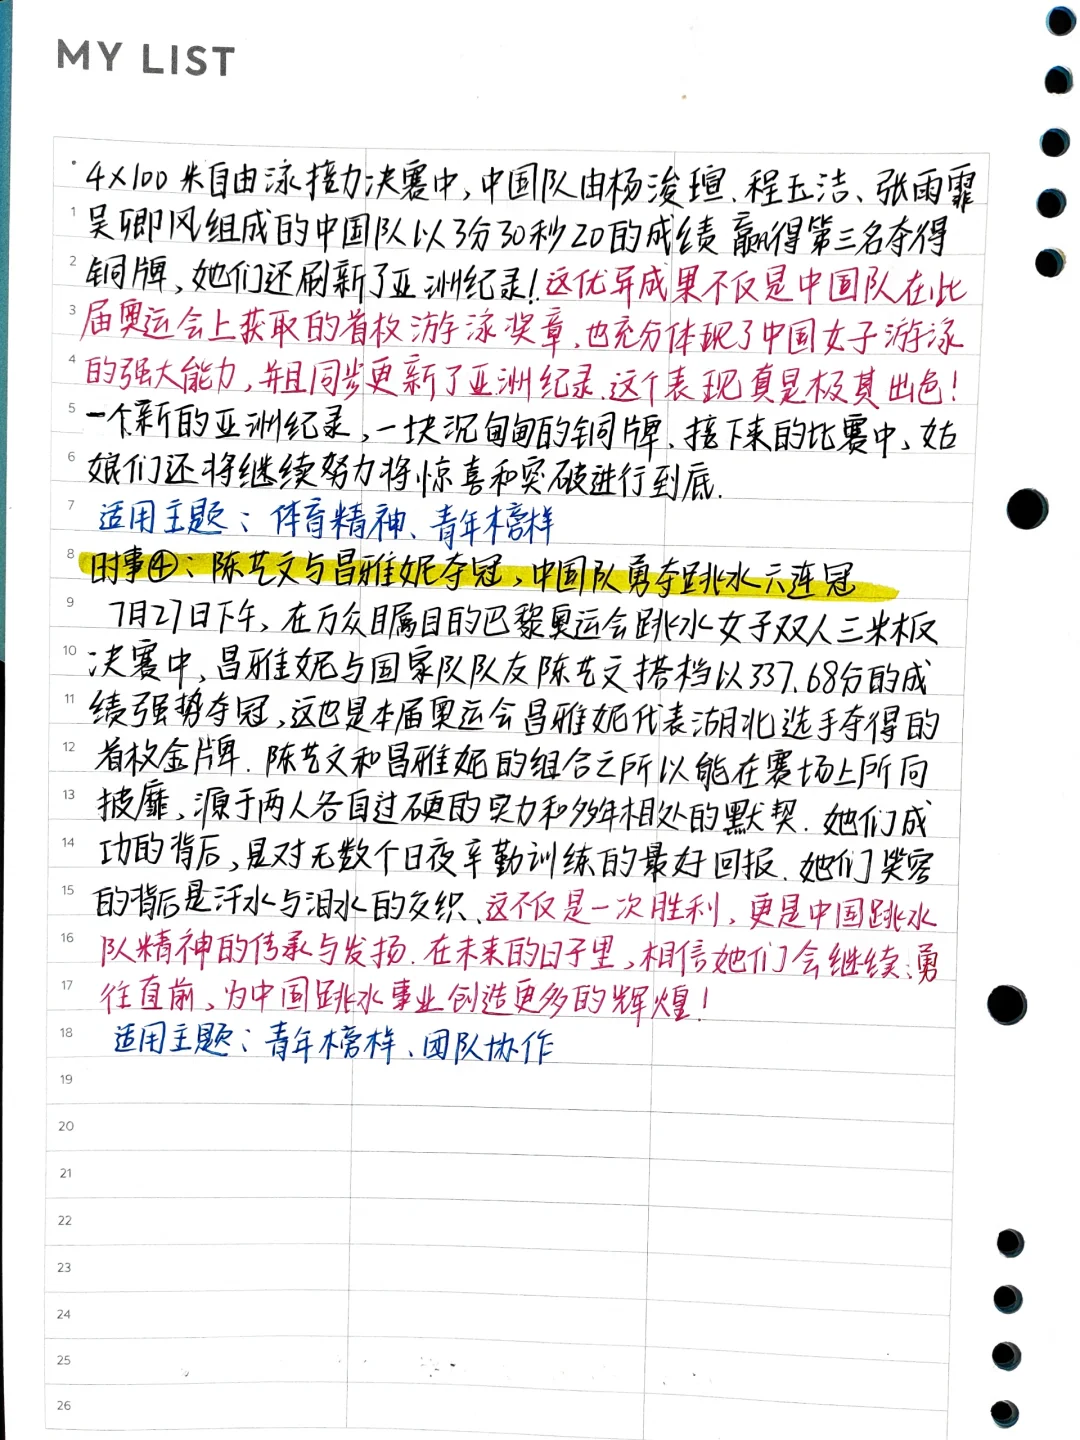 MY LIST
4×100米自由泳接力决赛中,中国队由杨浚瑄、程玉洁、张雨霏
1 吴卿风组成的中国队以3分30秒20的成绩赢得第三名夺得
2 铜牌,她们还刷新了亚洲纪录!这优异成果不仅是中国队在此
3 届奥运会上获取的首枚游泳奖章,也充分体现了中国女子游泳
4 的强大能力,并且同步更新了亚洲纪录.这个表现真是极其出色!
5 一个新的亚洲纪录,一块沉甸甸的铜牌、接下来的比赛中,姑
6 娘们还将继续努力将惊喜和突破进行到底.
7 适用主题:体育精神、青年榜样
8 时事④:陈艺文与昌雅妮夺冠,中国队勇夺跳水六连冠
9 7月27日下午,在万众瞩目的巴黎奥运会跳水女子双人三米板
10 决赛中,昌雅妮与国家队队友陈艺文搭档以337.68分的成
11 绩强势夺冠,这也是本届奥运会昌雅妮代表湖北选手夺得的
12 首枚金牌.陈艺文和昌雅妮的组合之所以能在赛场上所向
13 披靡,源于两人各自过硬的实力和多年相处的默契.她们成
14 功的背后,是对无数个日夜辛勤训练的最好回报.她们笑容
15 的背后是汗水与泪水的交织、这不仅是一次胜利,更是中国跳水
16 队精神的传承与发扬.在未来的日子里,相信她们会继续勇
17 往直前,为中国跳水事业创造更多的辉煌!
18 适用主题:青年榜样、团队协作
19
20
21
22
23
24
25
26